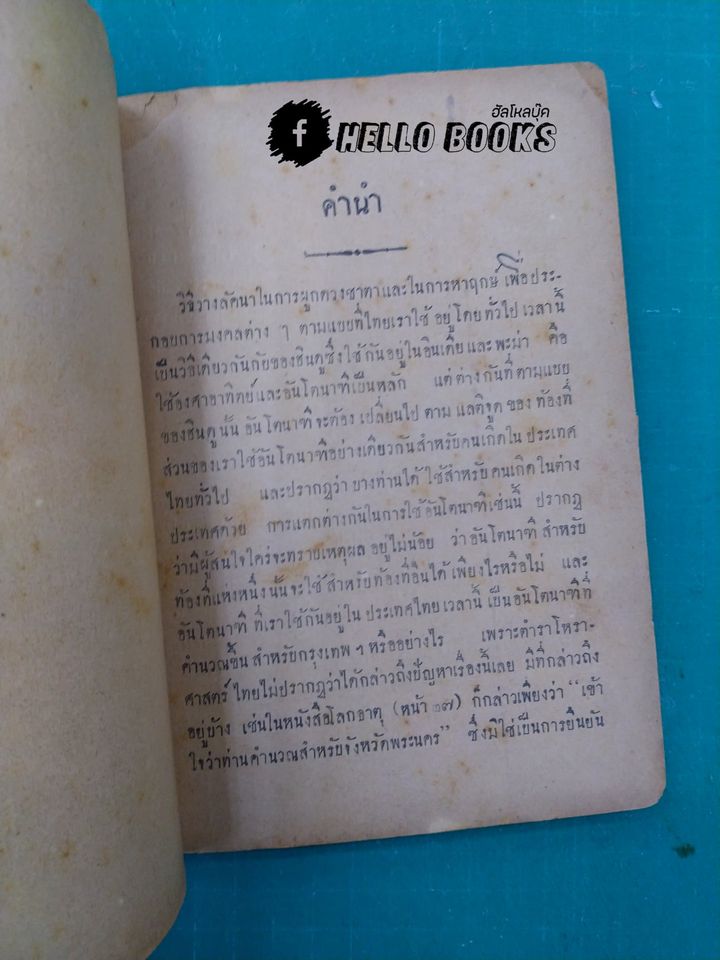 ฮัลโหลบุ๊ค
f HELLO BOOKS
คำนำ
วิธีวางลัคนาในการผูกดวงชาตาและในการหาฤกษ์ เพื่อประ-
กอบการมงคลต่าง ๆ ตามแบบที่ไทยเราใช้ อยู่โดยทั่วไป เวลานี้
เป็นวิธีเดียวกันกับของฮินดูซึ่งใช้กันอยู่ในอินเดีย และ พะม่า คือ
ใช้องศาอาทิตย์และอันโตนาฑีเป็นหลัก แต่ต่างกันที่ ตามแบบ
ของฮินดูนั้น อันโตนาฑีจะต้อง เปลี่ยนไป ตาม แลติจูด ของ ท้องที่
ส่วนของเราใช้อันโตนาฑีอย่างเดียวกันสำหรับคนเกิดใน ประเทศ
ไทยทั่วไป และปรากฏว่า บางท่านได้ ใช้สำหรับคนเกิดในต่าง
ประเทศด้วย การแตกต่างกันในการใช้อันโตนาฑีเช่นนี้ ปรากฏ
ว่ามีผู้สนใจใคร่จะทราบเหตุผล อยู่ไม่น้อย ว่า อันโตนาฑี สำหรับ
ท้องที่แห่งหนึ่งนั้นจะใช้ สำหรับท้องที่อื่นได้ เพียงไรหรือไม่ และ
อันโตนาฑี ที่เราใช้กันอยู่ใน ประเทศไทย เวลานี้ เป็นอันโตนาฑีที่
คำนวณขึ้น สำหรับกรุงเทพ ฯ หรืออย่างไร เพราะตำราโหรา-
ศาสตร์ ไทยไม่ปรากฏว่าได้กล่าวถึงปัญหาเรื่องนี้เลย มีที่กล่าวถึง
อยู่บ้าง เช่นในหนังสือโลกธาตุ (หน้า ๑๗) ก็กล่าวเพียงว่า “เข้า
ใจว่าท่านคำนวณสำหรับจังหวัดพระนคร” ซึ่งมิใช่เป็นการยืนยัน